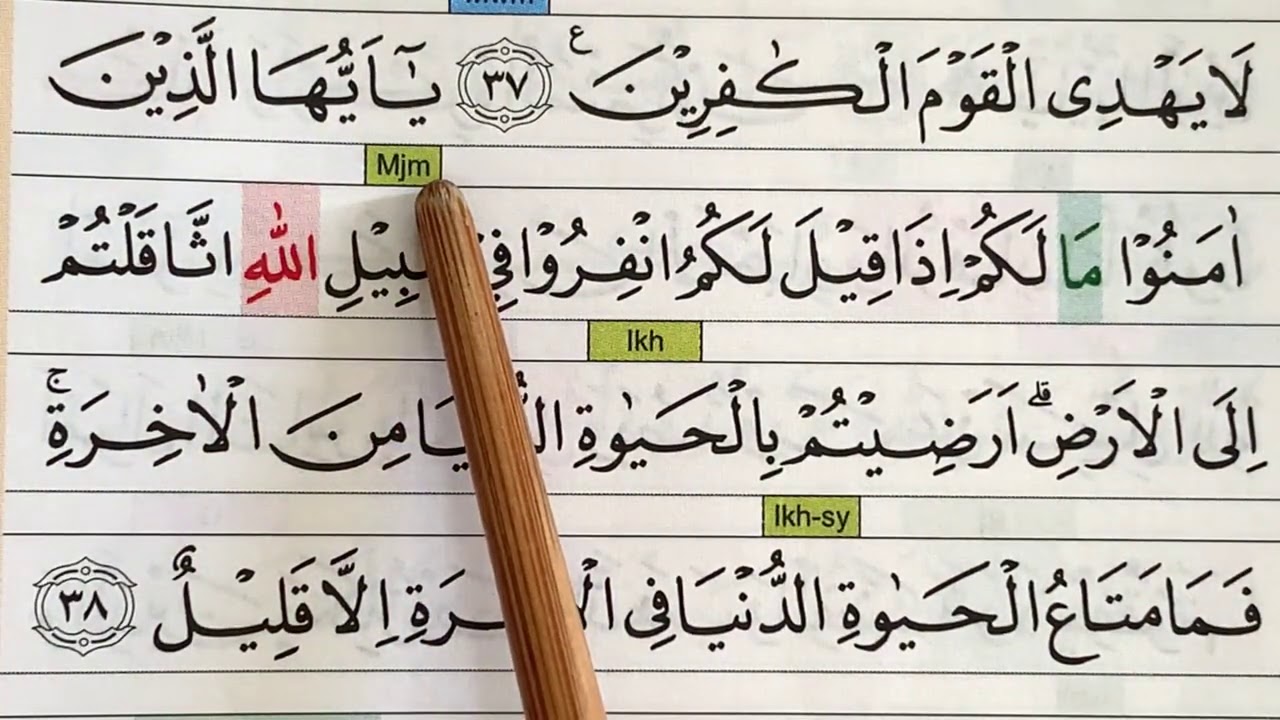 لَا يَهْدِى الْقَوْمَ الْكٰفِرِيْنَ ࣖ ٣٧ يٰٓاَيُّهَا الَّذِيْنَ
Mjm
اٰمَنُوْا مَا لَكُمْ اِذَا قِيْلَ لَكُمُ انْفِرُوْا فِيْ سَبِيْلِ اللّٰهِ اثَّاقَلْتُمْ
Ikh
اِلَى الْاَرْضِۗ اَرَضِيْتُمْ بِالْحَيٰوةِ الدُّنْيَا مِنَ الْاٰخِرَةِۚ
Ikh-sy
فَمَا مَتَاعُ الْحَيٰوةِ الدُّنْيَا فِى الْاٰخِرَةِ اِلَّا قَلِيْلٌ ٣٨